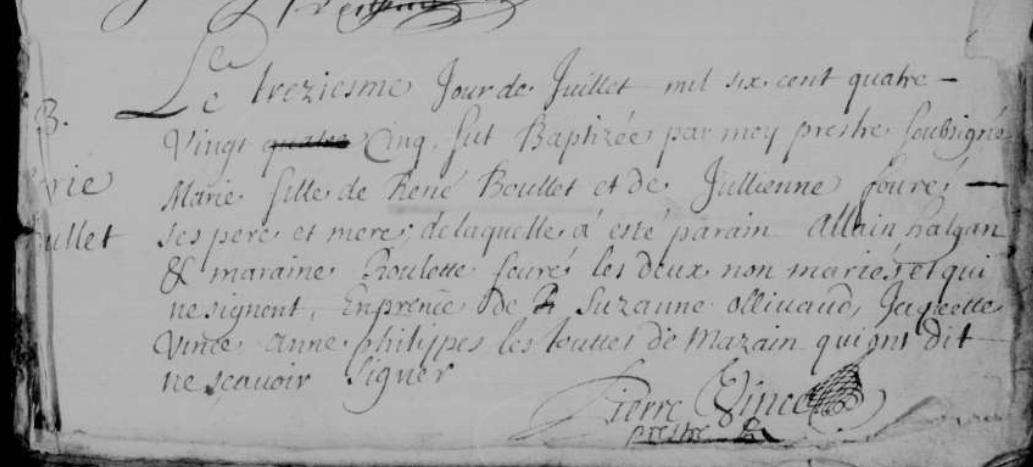 Le treziesme Jour de Juillet mil six cent quatre -
B.
Vingt quatre Cinq. fut Baptizée par moy prestre soubsigné
Marie fille de René Boullet et de Jullienne fouré -
rie
ses pere et mere; de laquelle a esté parain Allain halgan
ullet
& maraine Roulette fouré les deux non mariés et qui
ne signent, En prence de Suzanne Ollivaud, Jacquette
Vince anne philippes les touttes de Mazain qui ont dit
ne sçauoir signer
Pierre Vince
prestre